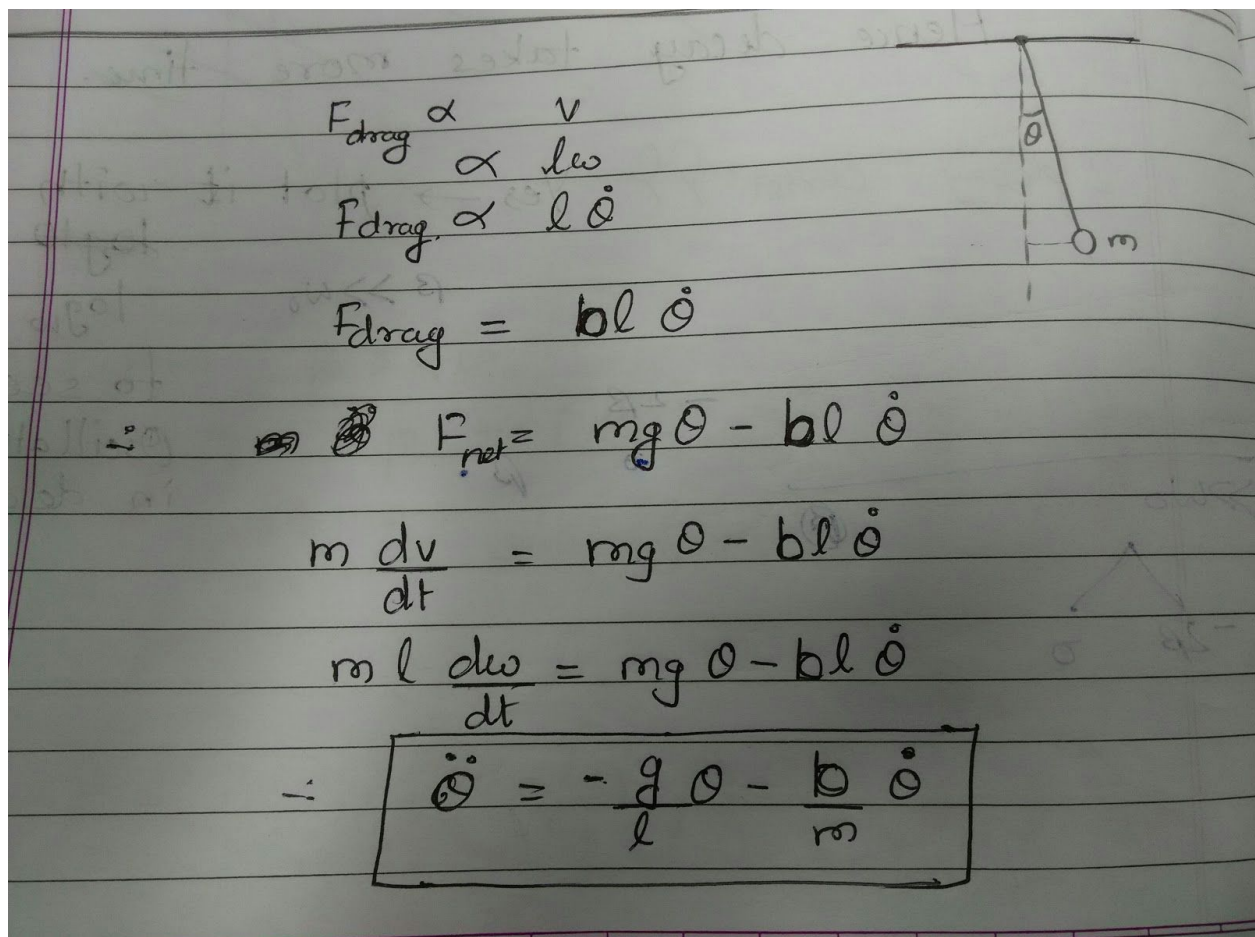 F_drag ∝ v
∝ lω
F_drag. ∝ l θ̇
F_drag = bl θ̇
∴ F_net = mg θ - bl θ̇
m dv/dt = mg θ - bl θ̇
m l dω/dt = mg θ - bl θ̇
∴ θ̈ = - g/l θ - b/m θ̇
θ
m